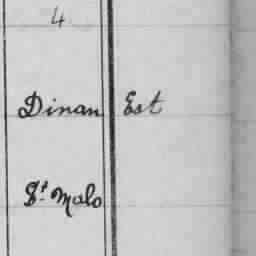 4
Dinan Est
St Malo